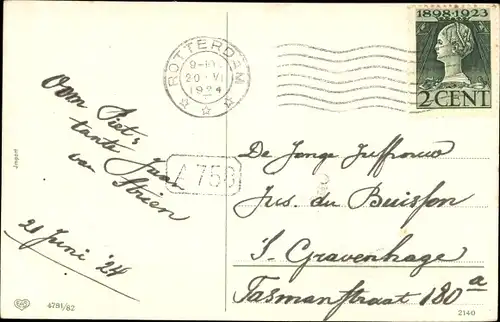 1898-1923
2 CENT
ROTTERDAM
20 VI
1924
Oom Piet's
tante
van Strien
21 Juni '24
A 758
De Jonge Juffrouw
Jus. du Buisson
S. Gravenhage
Tasmanstraat 180a
Import
4781/82
2140